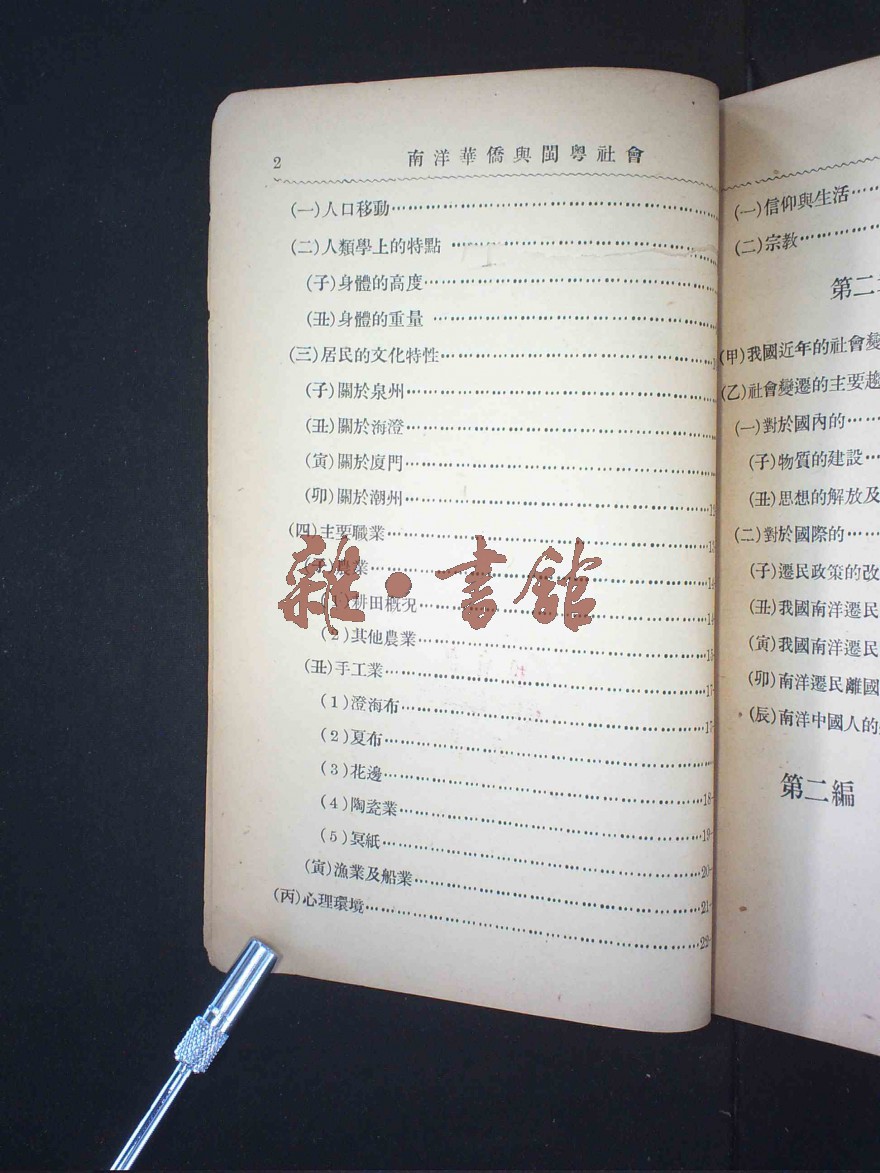 2
南洋華僑與閩粵社會
(一)人口移動
(二)人類學上的特點
(子)身體的高度
(丑)身體的重量
(三)居民的文化特性
(子)關於泉州
(丑)關於海澄
(寅)關於廈門
(卯)關於潮州
(四)主要職業
(子)農業
(1)耕田概況
(2)其他農業
(丑)手工業
(1)澄海布
(2)夏布
(3)花邊
(4)陶瓷業
(5)冥紙
(寅)漁業及船業
(丙)心理環境
雜·書館
(一)信仰與生活
(二)宗教
第二
(甲)我國近年的社會變
(乙)社會變遷的主要趨
(一)對於國內的
(子)物質的建設
(丑)思想的解放及
(二)對於國際的
(子)遷民政策的改
(丑)我國南洋遷民
(寅)我國南洋遷民
(卯)南洋遷民離國
(辰)南洋中國人的
第二編